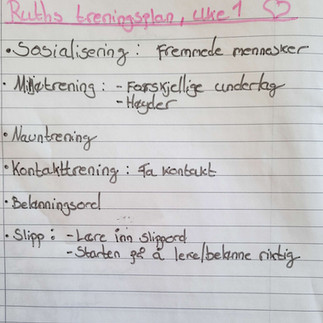 Ruths treningsplan, uke 1 ♡
• Sosialisering : Fremmede mennesker
• Miljøtrening : - Forskjellige underlag
- Høyder
• Navntrening
• Kontakttrening : Ta kontakt
• Belønningsord
• Slipp : - Lære inn slippord
- Starten på å leke/belønne riktig